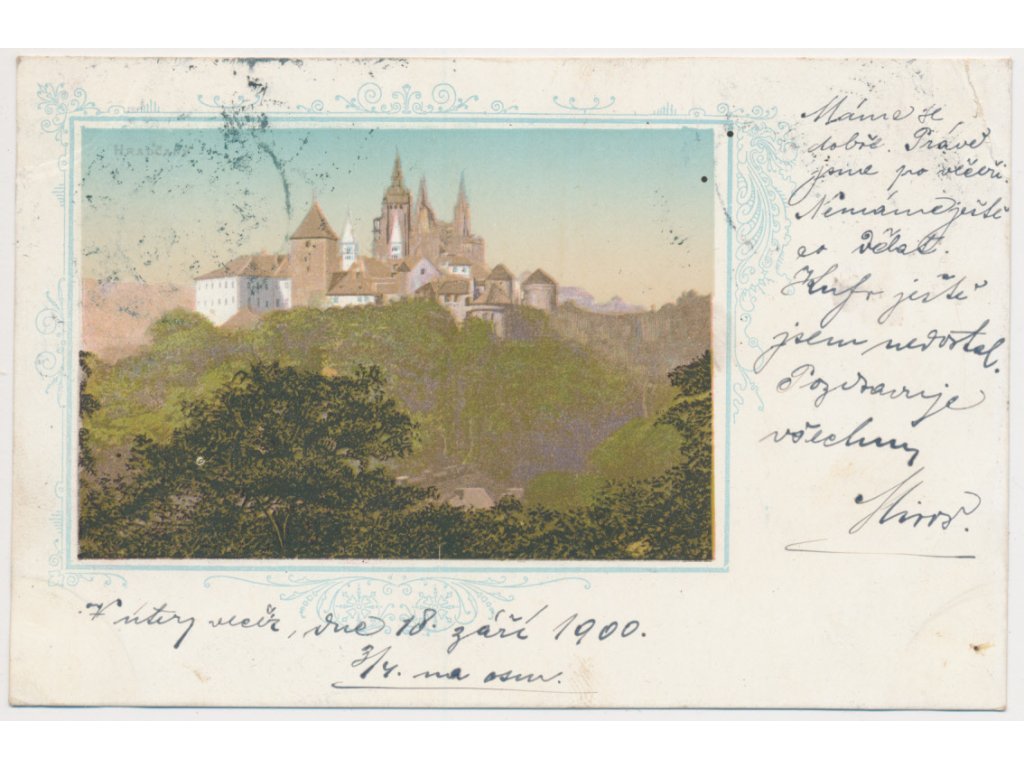 HRADČANY
Máme se
dobře. Právě
jsme po večeři.
Nemáme ještě
co dělat.
Kufr ještě
jsem nedostal.
Pozdravuje
všechny
Miroš.
V úterý večír, dne 18. září 1900.
3/4. na osm.